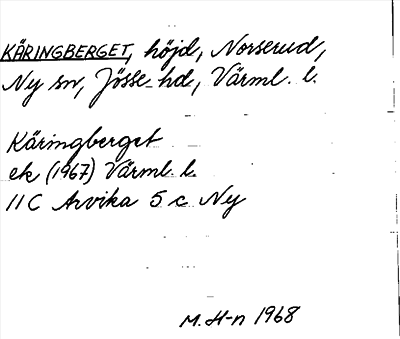 KÄRINGBERGET, höjd, Norserud,
Ny sn, Jösse hd, Värml. l.
Käringberget
ek (1967) Värml. l.
11C Arvika 5 c Ny
M. H-n 1968